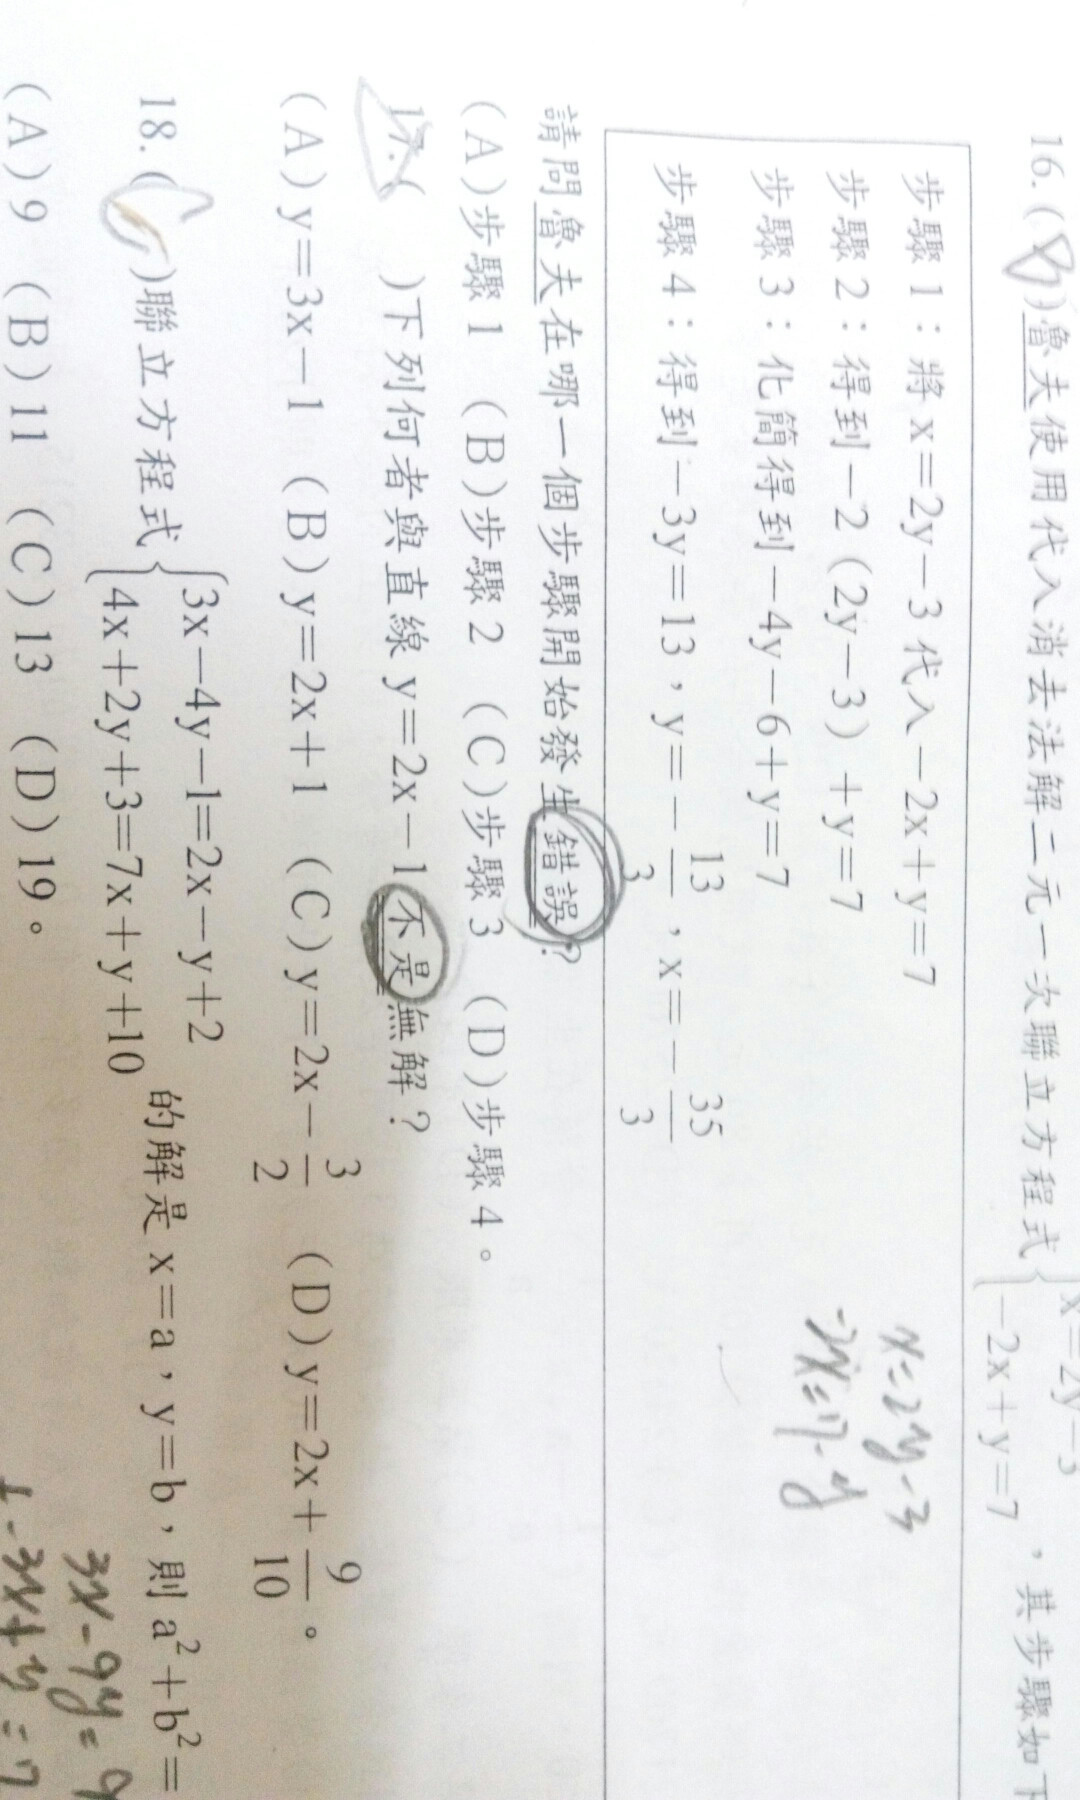 16.(B)魯夫使用代入消去法解二元一次聯立方程式{x=2y-3
-2x+y=7 ，其步驟如下
步驟1：將x=2y-3代入-2x+y=7
步驟2：得到-2(2y-3)+y=7
步驟3：化簡得到-4y-6+y=7
步驟4：得到-3y=13，y=-13/3，x=-35/3
請問魯夫在哪一個步驟開始發生錯誤？
(A)步驟1 (B)步驟2 (C)步驟3 (D)步驟4。
17.( )下列何者與直線y=2x-1不是無解？
(A)y=3x-1 (B)y=2x+1 (C)y=2x-3/2 (D)y=2x+9/10。
18.( )聯立方程式{3x-4y-1=2x-y+2
4x+2y+3=7x+y+10 的解是x=a，y=b，則a²+b²=
(A)9 (B)11 (C)13 (D)19。
x=2y-3
-2x=7-y
3x-9y=9
-3x+y=7